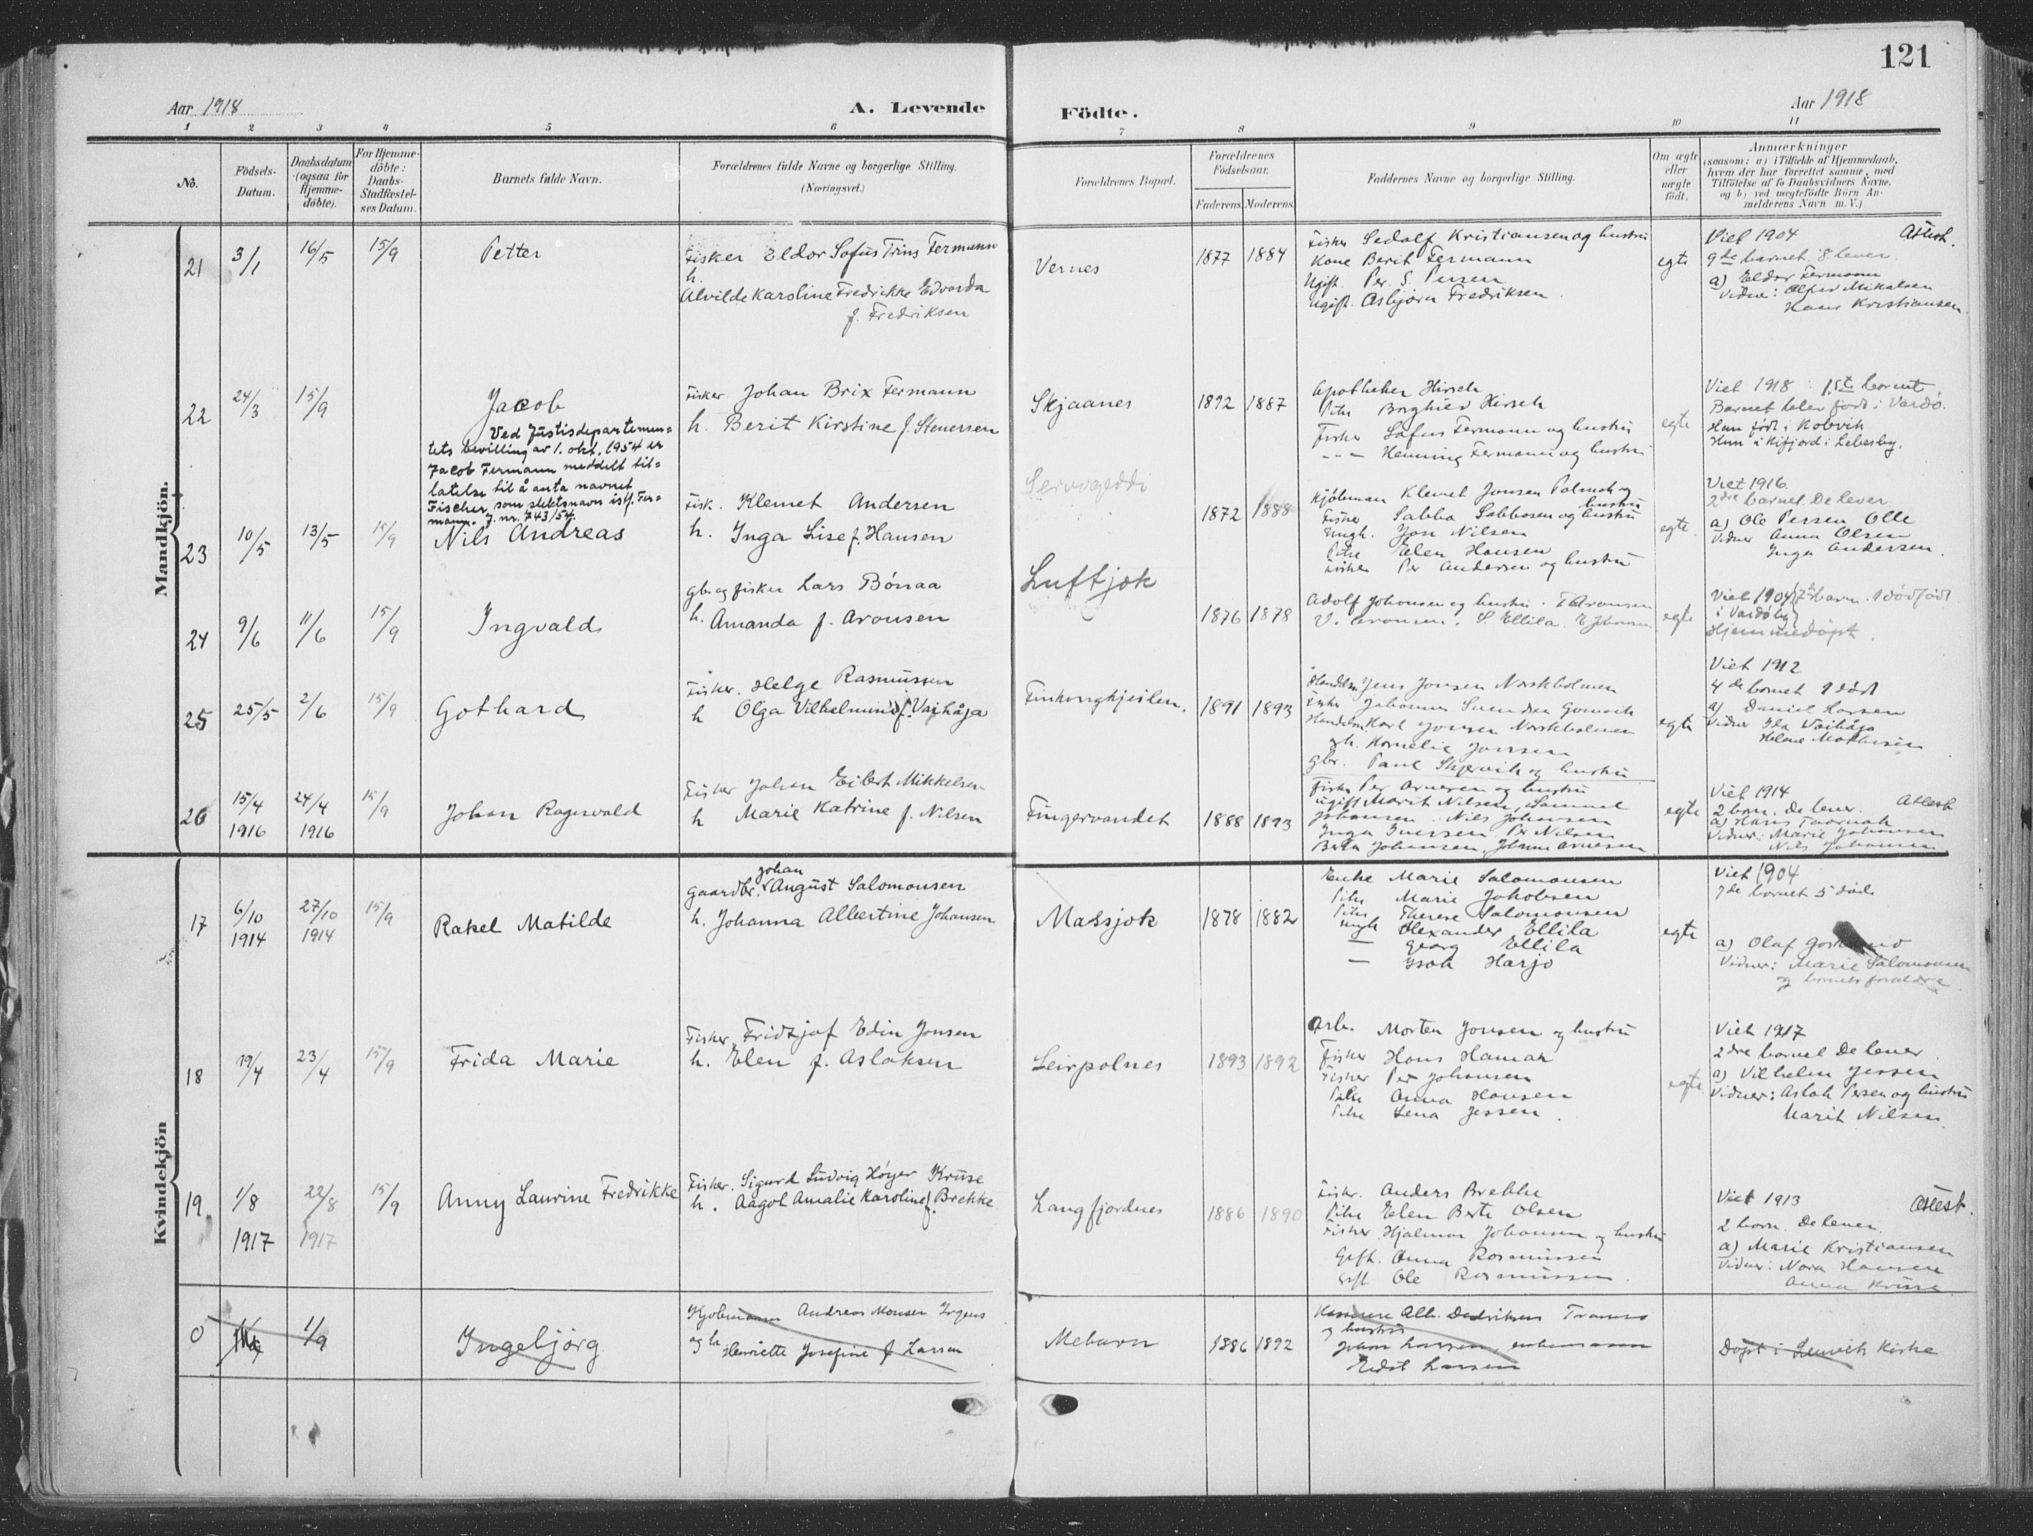 121
Aar 1918
A. Levende
Födte.
Aar 1918
1 2 3 4 5 6 7 8 9 10 11
No.
Födsels-
Datum.
Daabsdatum
(ogsaa for
Hjemme-
döbte).
For Hjemme-
döbte:
Daabs-
Stadfæstel-
ses Datum.
Barnets fulde Navn.
Forældrenes fulde Navne og borgerlige Stilling.
(Næringsvei.)
Forældrenes Bopæl.
Forældrenes
Födselsaar.
Faderens. Moderens.
Faddernes Navne og borgerlige Stilling.
Om ægte
eller
uægte
födt.
Anmærkninger
(saasom: a) i Tilfælde af Hjemmedaab,
hvem der har forrettet samme, med
Tilföielse af to Daabsvidners Navne,
og b) ved uægtefödte Börn An-
melderens Navn m. V.)
Mandkjön.
21
3/1
16/5
15/9
Petter
Fisker Eldor Sofus Trins Fermann
h.
Alvilde Karoline Fredrikke Edvarda
f. Fredriksen
Vernes
1877 1884
Fisker Sedolf Kristiansen og hustru
Kone Berit Fermann
Ugift. Per. S. Persen
Ugift. Asbjörn Fredriksen.
egte
Viet 1904 Attest.
9de barnet. 8 lever.
a) Eldor Fermann
Vidner: Olfred Mikalsen
Hans Kristiansen.
22
24/3
15/9
Jacob
Ved Justisdepartemen-
tets bevilling av 1. okt. 1954 er
Jacob Fermann meddelt til-
latelse til å anta navnet
Fischer som slektsnavn istf. Fer-
mann. J.nr. 743/54.
Fisker Johan Brix Fermann
h. Berit Kirstine f. Stenersen
Skjaanes
1892 1887
Apotheker Hirsch
Pike Borghild Hirsch
Fisker Sofus Fermann og hustru
Henning Fermann og hustru
egte
Viet 1918 1ste barnet
Barnet blev födt i Vardö.
Han födt i Kobvik
Hun i Kifjord i Lebesby.
23
10/5
13/5
15/9
Nils Andreas
Fisk. Klemet Andersen
h. Inga Lise f. Hansen
1872 1888
Kjöbman Klemet Jonsen Palmak og hustru
Fisker Sabba Sabbasen og hustru
Ungk. Jon Nilsen
Pike Elen Hansen
Fisker Per Andersen og hustru
egte.
Viet 1916.
2dre barnet De lever
a) Ole Persen Olle
Vidner Anna Olsen
Inga Andersen.
24
9/6
11/6
15/9
Ingvald
gbr. og fisker Lars Bönaa
h. Amanda f. Aronsen
Luftjok
1876 1878
Adolf Johansen og hustru. F. Aronsen
V. Aronsen. S. Ellila. E. Johansen
egte
Viet 1904
i Vardöby
Hjemmedöpt.
25
25/5
2/6
15/9
Gothard
Fisker. Helge Rasmussen
h Olga Vilhelmine f. Vaihåja
Finkongkjeilen.
1891 1893
Handelsm. Jens Jonsen Norskholmen
Fisker Johannes Svendsen
Handelsm. Karl Jonsen Norskholmen
gh. Kornelie Jonssen
gbr. Paul Skjervik og hustru
egte
Viet 1912
4de barnet 1 död
a) Daniel Hansen
Vidner Ida Vaihåja
Helene Mathisen
26
15/4
1916
24/4
1916
15/9
Johan Ragnvald
Fisker Johan Eilert Mikkelsen
h Marie Katrine f. Nilsen
Fingervandet
1888 1893
Fisker Per Arnesen og hustru
ugift Marit Nilsen, Sammel
Johansen. Nils Johansen
Inga Iversen Per Nilsen
Berta Johansen, Johanne Arnesen
egte
Viet 1914
2 barn. De lever. Attest
a) Hans Tvornak
Vidner: Marie Johansen
Nils Johansen
Kvindekjön
17
6/10
1914
27/10
1914
15/9
Rakel Matilde
Johan
Gaardbr. August Salomonsen
h. Johanna Albertine Johansen
Masjok
1878 1882
Enke Marie Salomonsen
Pike Marie Jakobsen
Pike Therese Salomonsen
Ungk Alexander Ellila
— Georg Ellila
— Isak Harjo
egte
Viet 1904
7de barnet 5 död.
a) Olaf
Vidner: Marie Salomonsen
og barnets forældre.
18
19/4
23/4
15/9
Frida Marie
Fisker. Fridtjof Edin Jonsen
h. Elen f. Aslaksen
Leirpolnes
1893 1892
Arb. Morten Jonsen og hustru
Fisker Hans Hamar
Fisker Per Johansen
Pike Anna Hansen
Pike Lena Jessen.
egte.
Viet 1917
2dre barnet De lever.
a) Vilhelm Jessen
Vidner: Aslak Persen og hustru
Marit Nilsen.
19
1/8
1917
22/8
1917
15/9
Anny Laurine Fredrikke
Fisker. Sigurd Ludvig Höyer Kruse
h. Aagot Amalie Karoline f. Brekke
Langfjordnes
1886 1890
Fisker. Anders Brekke
Pike Elen Berte Olsen
Fisker Hjalmar Johansen og hustru
Gift. Anna Rasmussen
Gift Ole Rasmussen.
Viet 1913 Attest.
2 barn. De lever.
a) Marie Kristiansen
Vidner: Nora Hansen
Anna Kruse
0
1/9
Ingebjörg
Kjöbmann Andreas Monsen Irgens
og h. Henriette Josefine f. Larsen
Mehavn
1886 1892
Kasserer Alb. Dedriksen Tromsö
og hustru
Johan Larsen
Larsen
Döpt i Lenvik Kirke